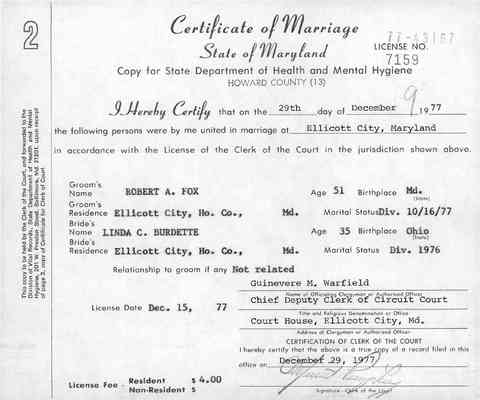 2
Certificate of Marriage
77-43167
State of Maryland
LICENSE NO.
7159
Copy for State Department of Health and Mental Hygiene
HOWARD COUNTY (13)
9
I Hereby Certify that on the 29th day of December 1977
the following persons were by me united in marriage at Ellicott City, Maryland
in accordance with the License of the Clerk of the Court in the jurisdiction shown above.
Groom's
Name ROBERT A. FOX Age 51 Birthplace Md.
(State)
Groom's
Residence Ellicott City, Ho. Co., Md. Marital Status Div. 10/16/77
Bride's
Name LINDA C. BURDETTE Age 35 Birthplace Ohio
(State)
Bride's
Residence Ellicott City, Ho. Co., Md. Marital Status Div. 1976
Relationship to groom if any Not related
Guinevere M. Warfield
Name of Officiating Clergyman or Authorized Officer
License Date Dec. 15, 77 Chief Deputy Clerk of Circuit Court
Title and Religious Denomination or Office
Court House, Ellicott City, Md.
Address of Clergyman or Authorized Officer
CERTIFICATION OF CLERK OF THE COURT
I hereby certify that the above is a true copy of a record filed in this
office on December 29, 1977
License Fee - Resident $ 4.00
Non-Resident $
Signature - Clerk of the Court
This copy to be held by the Clerk of the Court, and forwarded to the
Division of Vital Records, State Department of Health and Mental
Hygiene, 201 W. Preston Street, Baltimore, Md. 21201, upon receipt
of page 3, copy of Certificate for Clerk of Court